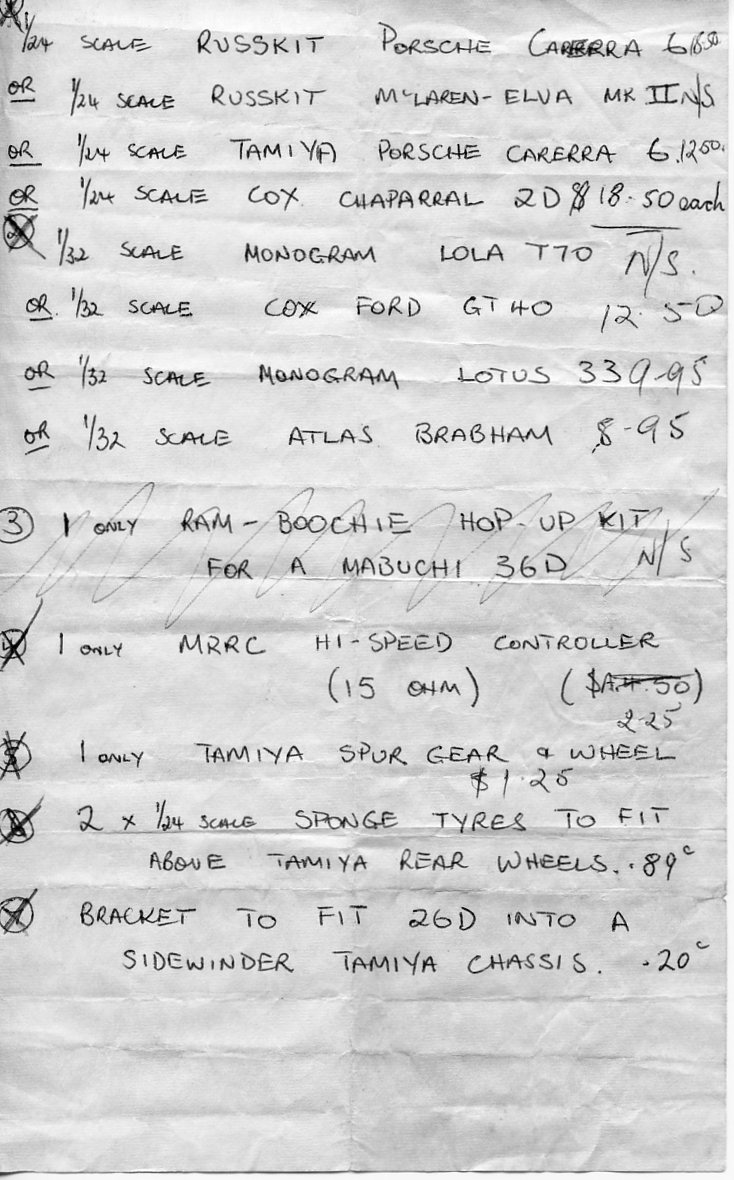 1/24 SCALE RUSSKIT PORSCHE CARERRA 6 18.50
OR 1/24 SCALE RUSSKIT McLAREN-ELVA MK II N/S
OR 1/24 SCALE TAMIYA PORSCHE CARERRA 6. 12.50.
OR 1/24 SCALE COX CHAPARRAL 2D $18.50 each
2 1/32 SCALE MONOGRAM LOLA T70 N/S.
OR. 1/32 SCALE COX FORD GT40 12.50
OR 1/32 SCALE MONOGRAM LOTUS 33 9.95
OR 1/32 SCALE ATLAS BRABHAM 8.95
3 1 ONLY RAM-BOOCHIE HOP-UP KIT
FOR A MABUCHI 36D N/S
4 1 ONLY MRRC HI-SPEED CONTROLLER
(15 OHM) ($A4.50)
2.25
5 1 ONLY TAMIYA SPUR GEAR & WHEEL
$1.25
6 2 x 1/24 SCALE SPONGE TYRES TO FIT
ABOVE TAMIYA REAR WHEELS. .89c
7 BRACKET TO FIT 26D INTO A
SIDEWINDER TAMIYA CHASSIS. .20c